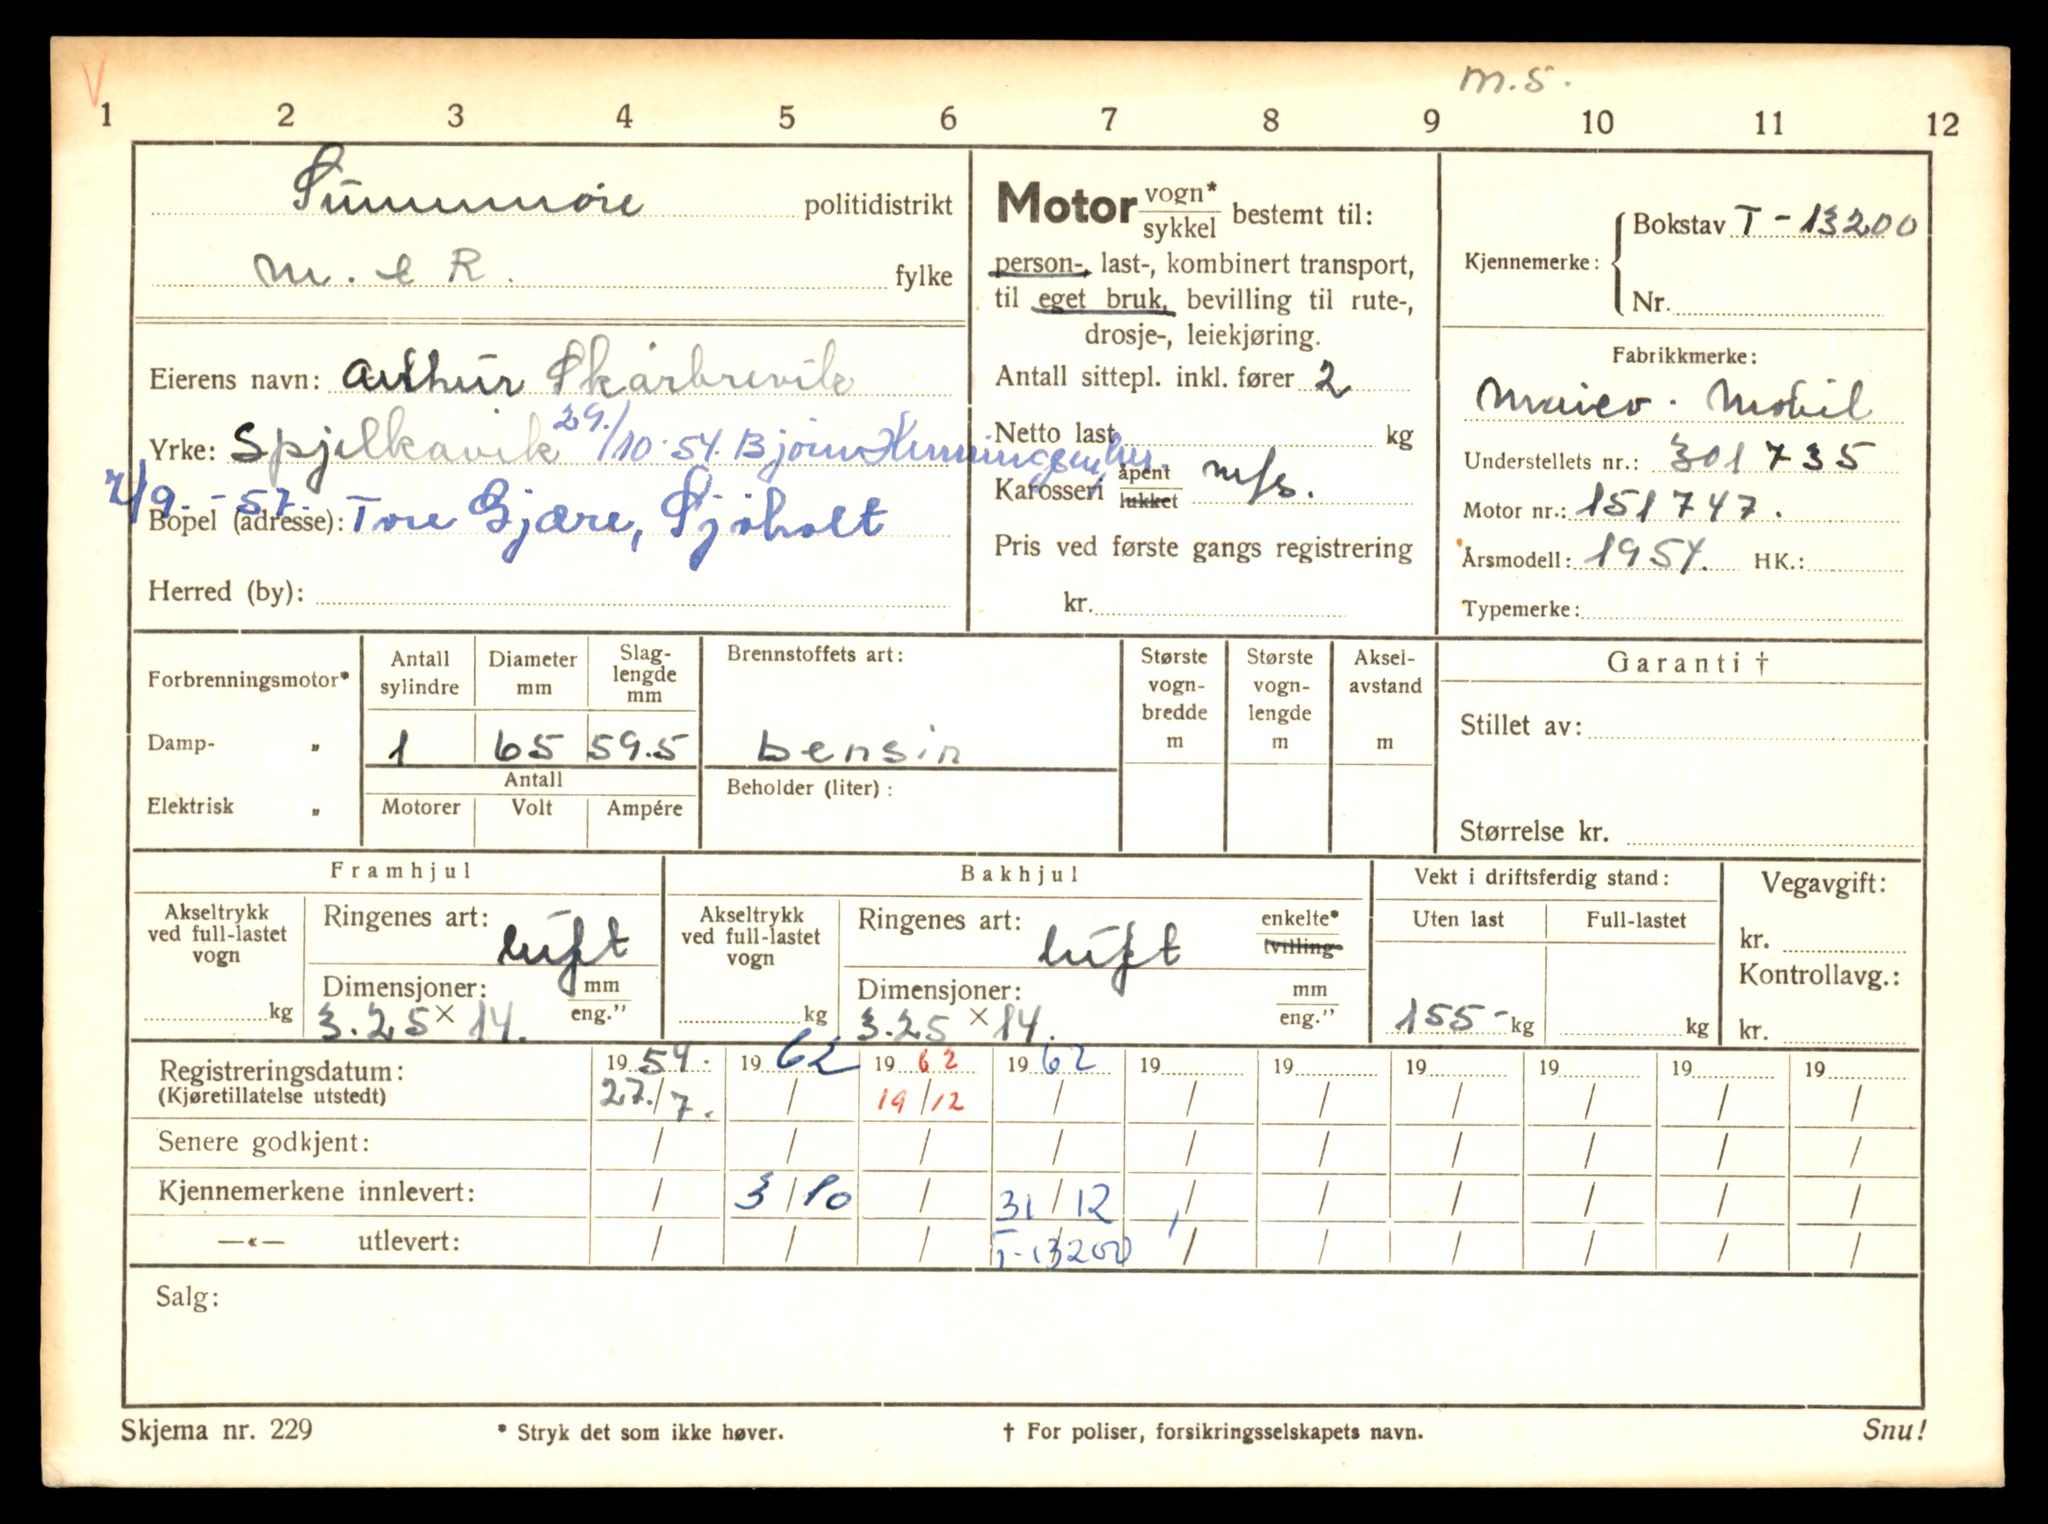 V
m.s.
1 2 3 4 5 6 7 8 9 10 11 12
Sunnmøre politidistrikt
M. & R. fylke
Eierens navn: Arthur Skårbrevik
Yrke: Spjelkavik 29./10-54. Bjørn Henningsen,
7/9 - 57.
Bopel (adresse): Tore Gjære, Sjøholt
Herred (by):
Motor vogn* / sykkel bestemt til:
person-, last-, kombinert transport,
til eget bruk, bevilling til rute-,
drosje-, leiekjøring.
Antall sittepl. inkl. fører 2
Netto last kg
Karosseri åpent / lukket m/s.
Pris ved første gangs registrering
kr.
Kjennemerke: Bokstav T - 13200
Nr.
Fabrikkmerke:
Maico - Mobil
Understellets nr.: 301735
Motor nr.: 151747.
Årsmodell: 1954. HK.:
Typemerke:
Forbrenningsmotor*
Damp- „
Elektrisk „
Antall sylindre Diameter mm Slag-lengde mm
1 65 59.5
Antall
Motorer Volt Ampére
Brennstoffets art:
bensin
Beholder (liter):
Største vogn-bredde m
Største vogn-lengde m
Aksel-avstand m
Garanti †
Stillet av:
Størrelse kr.
Framhjul
Akseltrykk ved full-lastet vogn
kg
Ringenes art: luft
Dimensjoner: mm / eng."
3.25 × 14.
Bakhjul
Akseltrykk ved full-lastet vogn
kg
Ringenes art: luft enkelte* / tvilling-
Dimensjoner: mm / eng."
3.25 × 14.
Vekt i driftsferdig stand:
Uten last Full-lastet
155- kg kg
Vegavgift:
kr.
Kontrollavg.:
kr.
Registreringsdatum: 1954. 1962 1962 1962 19 19 19 19 19 19
(Kjøretillatelse utstedt) 27./7. / 19/12 / / / / / / /
Senere godkjent: / / / / / / / / / /
Kjennemerkene innlevert: / 3/10 / 31/12 / / / / / /
—«— utlevert: / / / T-13200 / / / / / /
Salg:
Skjema nr. 229 * Stryk det som ikke høver. † For poliser, forsikringsselskapets navn. Snu!